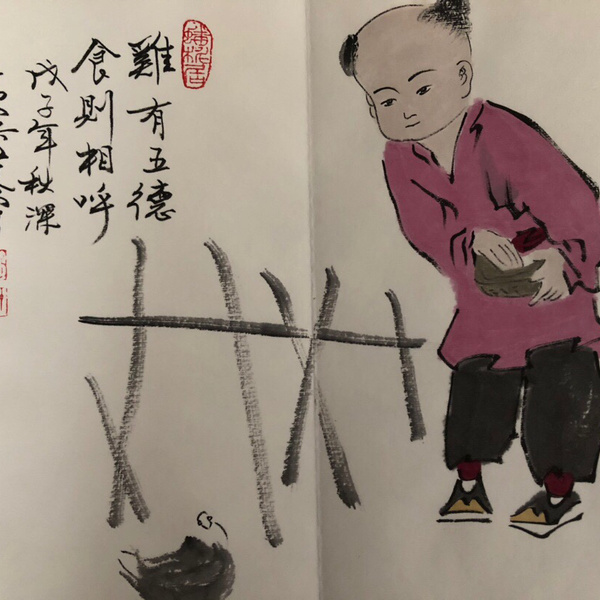 雞有五德
食則相呼
戊子年秋深